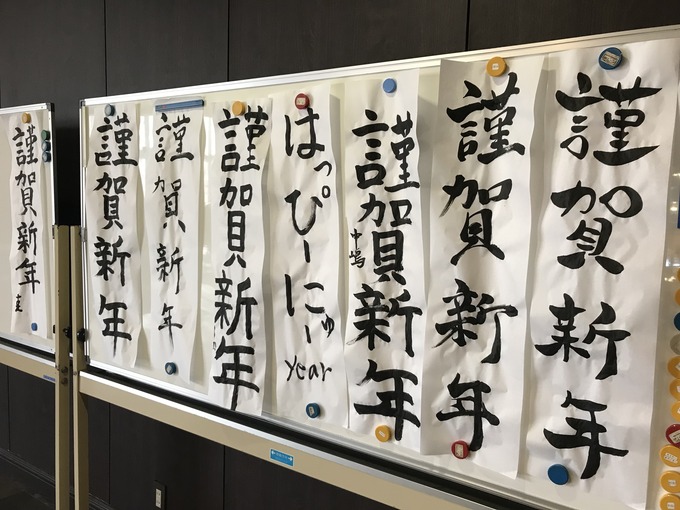 謹賀新年
謹賀新年
謹賀新年
中嶋
はっぴーにゅー
year
謹賀新年
謹賀新年
謹賀新年
謹賀新年